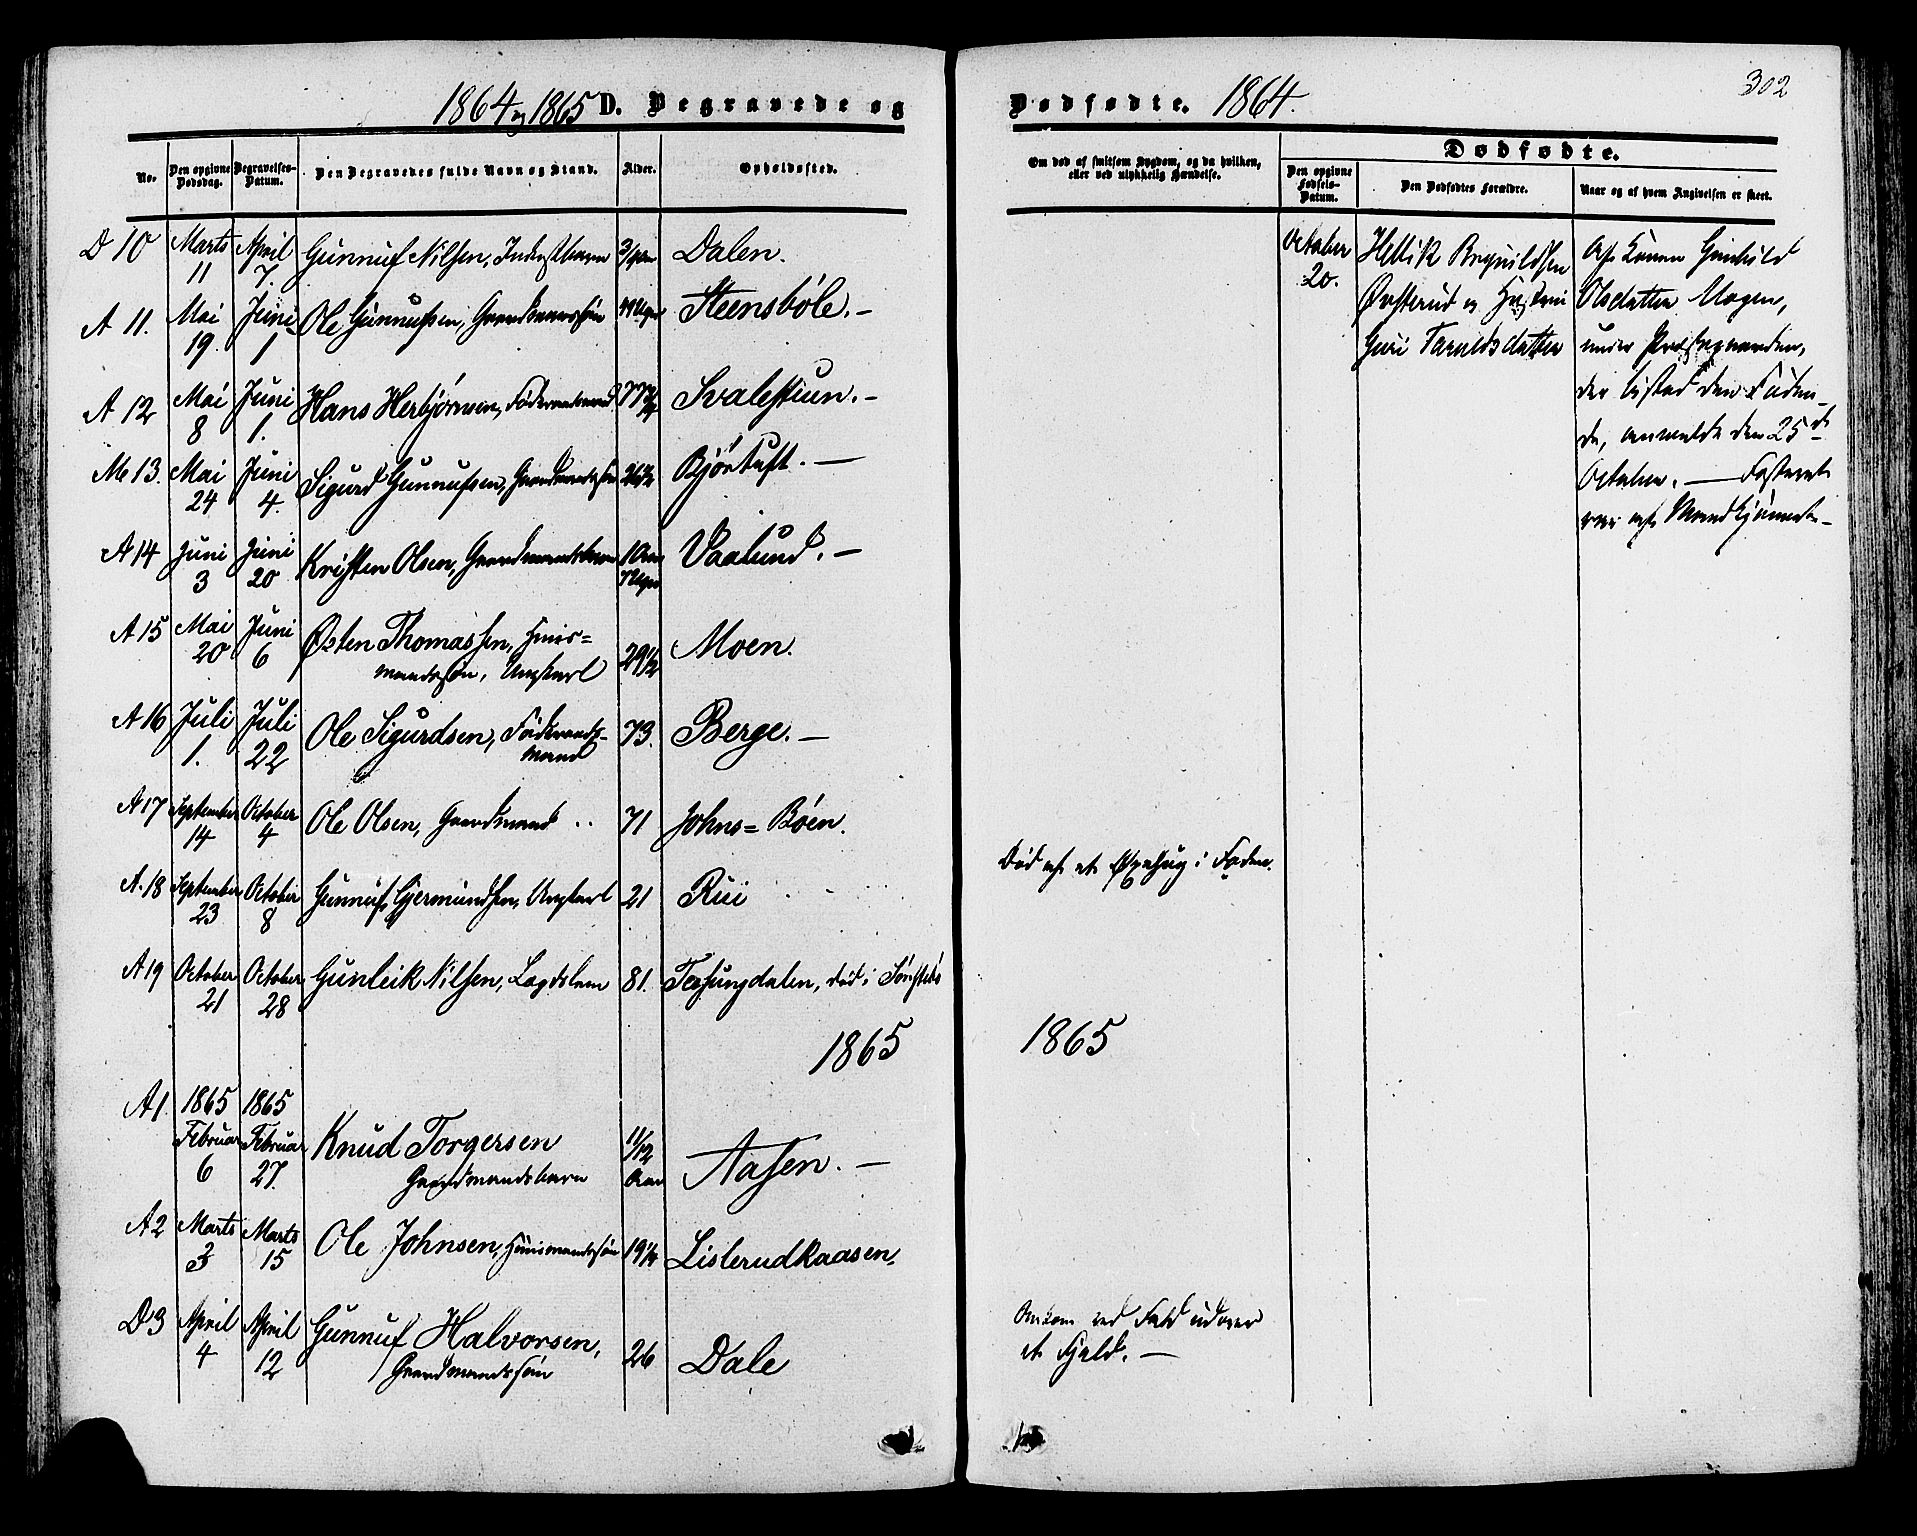 1864 og 1865 D. Begravede og
No.
Den opgivne Dödsdag.
Begravelses-Datum.
Den Begravedes fulde Navn og Stand.
Alder.
Opholdssted.
D 10 Marts 11 April 7. Gunnuf Nilsen, Dalen.
A 11. Mai 19. Juni 1 Ole Gunnufsen, Gaardmandssön Steensböle. —
A 12 Mai 8 Juni 1. Hans Herbjörnsen, Föderaadsmand Svalestuen. —
M 13. Mai 24 Juni 4. Sigurd Gunnufsen, Gaardmandssön Björtuft. —
A 14 Juni 3 Juni 20 Kristen Olsen, Gaardmandsbarn Vaalund. —
A 15 Mai 20 Juni 6 Østen Thomassen, Huus=
mandssön, Ungkarl 29 1/2 Moen.
A 16 Juli 1. Juli 22 Ole Sigurdsen, Föderaads-
mand 73. Berge. —
A 17 September 14 October 4 Ole Olsen, Gaardmand 71 Johns=Böen.
A. 18 September 23 October 8 Gunnuf Gjermundsen, Ungkarl 21 Rui
A 19 October 21 October 28 Gunleik Nilsen, Lægdslem 81. Tessungdalen, död i
1865
A 1. 1865 Februar 6 1865 Februar 27. Knud Torgersen
Gaardmandsbarn 11/12 Aar Aasen. —
A 2 Marts 3 Marts 15 Ole Johnsen, Huusmandssön 19 1/4 Lislerudkaasen.
D 3 April 4 April 12 Gunnuf Halvorsen,
Gaardmandssön 26 Dale
Dödfödte. 1864.
302
Om död af smitsom Sygdom, og da hvilken,
eller ved ulykkelig Hændelse.
Dödfödte.
Den opgivne Födsels-Datum.
Den Dödfödtes Forældre.
Naar og af hvem Angivelsen er skeet.
October 20.
Hellik Brynildsen
Østerud og Hustru
Guri Taraldsdatter
Af Konen Gunhild
Olsdatter Mogen,
under Præstegaarden,
der bistod den Föden-
de, anmeldt den 25de
October. — Fosteret
var af Mandkjönnet. –
Död af et Øxehug i Foden.
1865
Omkom ved Fald udover
et Fjeld. —